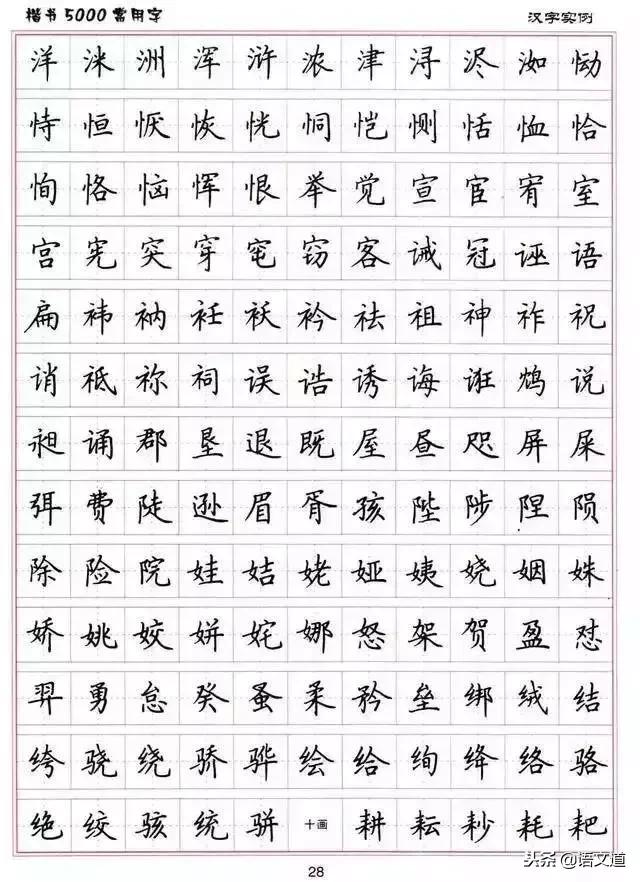 楷书5000常用字 汉字实例
洋 洣 洲 浑 浒 浓 津 浔 浕 洳 恸
恃 恒 恹 恢 恍 恫 恺 恻 恬 恤 恰
恂 恪 恼 恽 恨 举 觉 宣 宦 宥 室
宫 宪 突 穿 窀 窃 客 诫 冠 诬 语
扁 袆 衲 衽 袄 衿 祛 祖 神 祚 祝
诮 祗 祢 祠 误 诰 诱 诲 诳 鸩 说
昶 诵 郡 垦 退 既 屋 昼 咫 屏 屎
弭 费 陡 逊 眉 胥 孩 陛 陟 陧 陨
除 险 院 娃 姞 姥 娅 姨 娆 姻 姝
娇 姚 姣 姘 姹 娜 怒 架 贺 盈 怼
羿 勇 怠 癸 蚤 柔 矜 垒 绑 绒 结
绔 骁 绕 骄 骅 绘 给 绚 绛 络 骆
绝 绞 骇 统 骈 十画 耕 耘 耖 耗 耙
28
头条@语文道